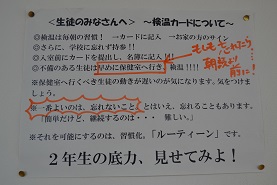 ＜生徒のみなさんへ＞　～検温カードについて～
◎検温は毎朝の習慣！　―カードに記入　―お家の方のサイン
◎さらに、学校に忘れず持参!!
◎入室前にカードを提出し、名簿に記入!!
◎不備のある生徒は早めに保健室へ行き　検温!!!!
※保健室へ行くべき生徒の動きが遅いのが気になります。気をつけましょう。
※一番よいのは、忘れないこと　とはいえ、忘れることもあります。
「簡単だけど、継続するのは・・・　難しい。」
※それを可能にするのは、習慣化。「ルーティーン」です。
２年生の底力、見せてみよ！